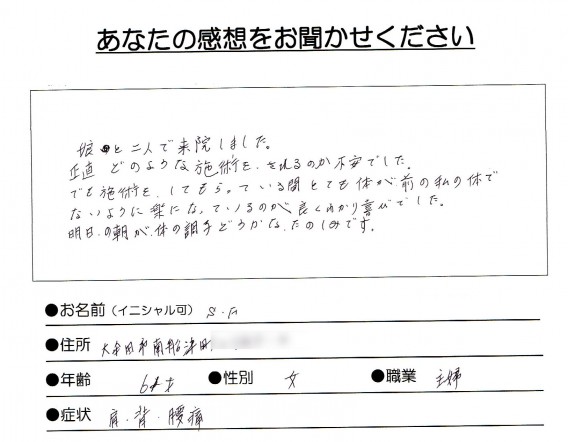 あなたの感想をお聞かせください
と二人で来院しました。
正直 どのような施術を、されるのか不安でした。
でも施術を、してもらっている間とても体が前の私の体で
ないように楽になっているのが良くわかり喜びでした。
明日、の朝が、体の調子どうかな、たのしみです。
●お名前（イニシャル可） S.F
●住所 大牟田市南船津町
●年齢 64才 ●性別 女 ●職業 主婦
●症状 肩・背・腰痛